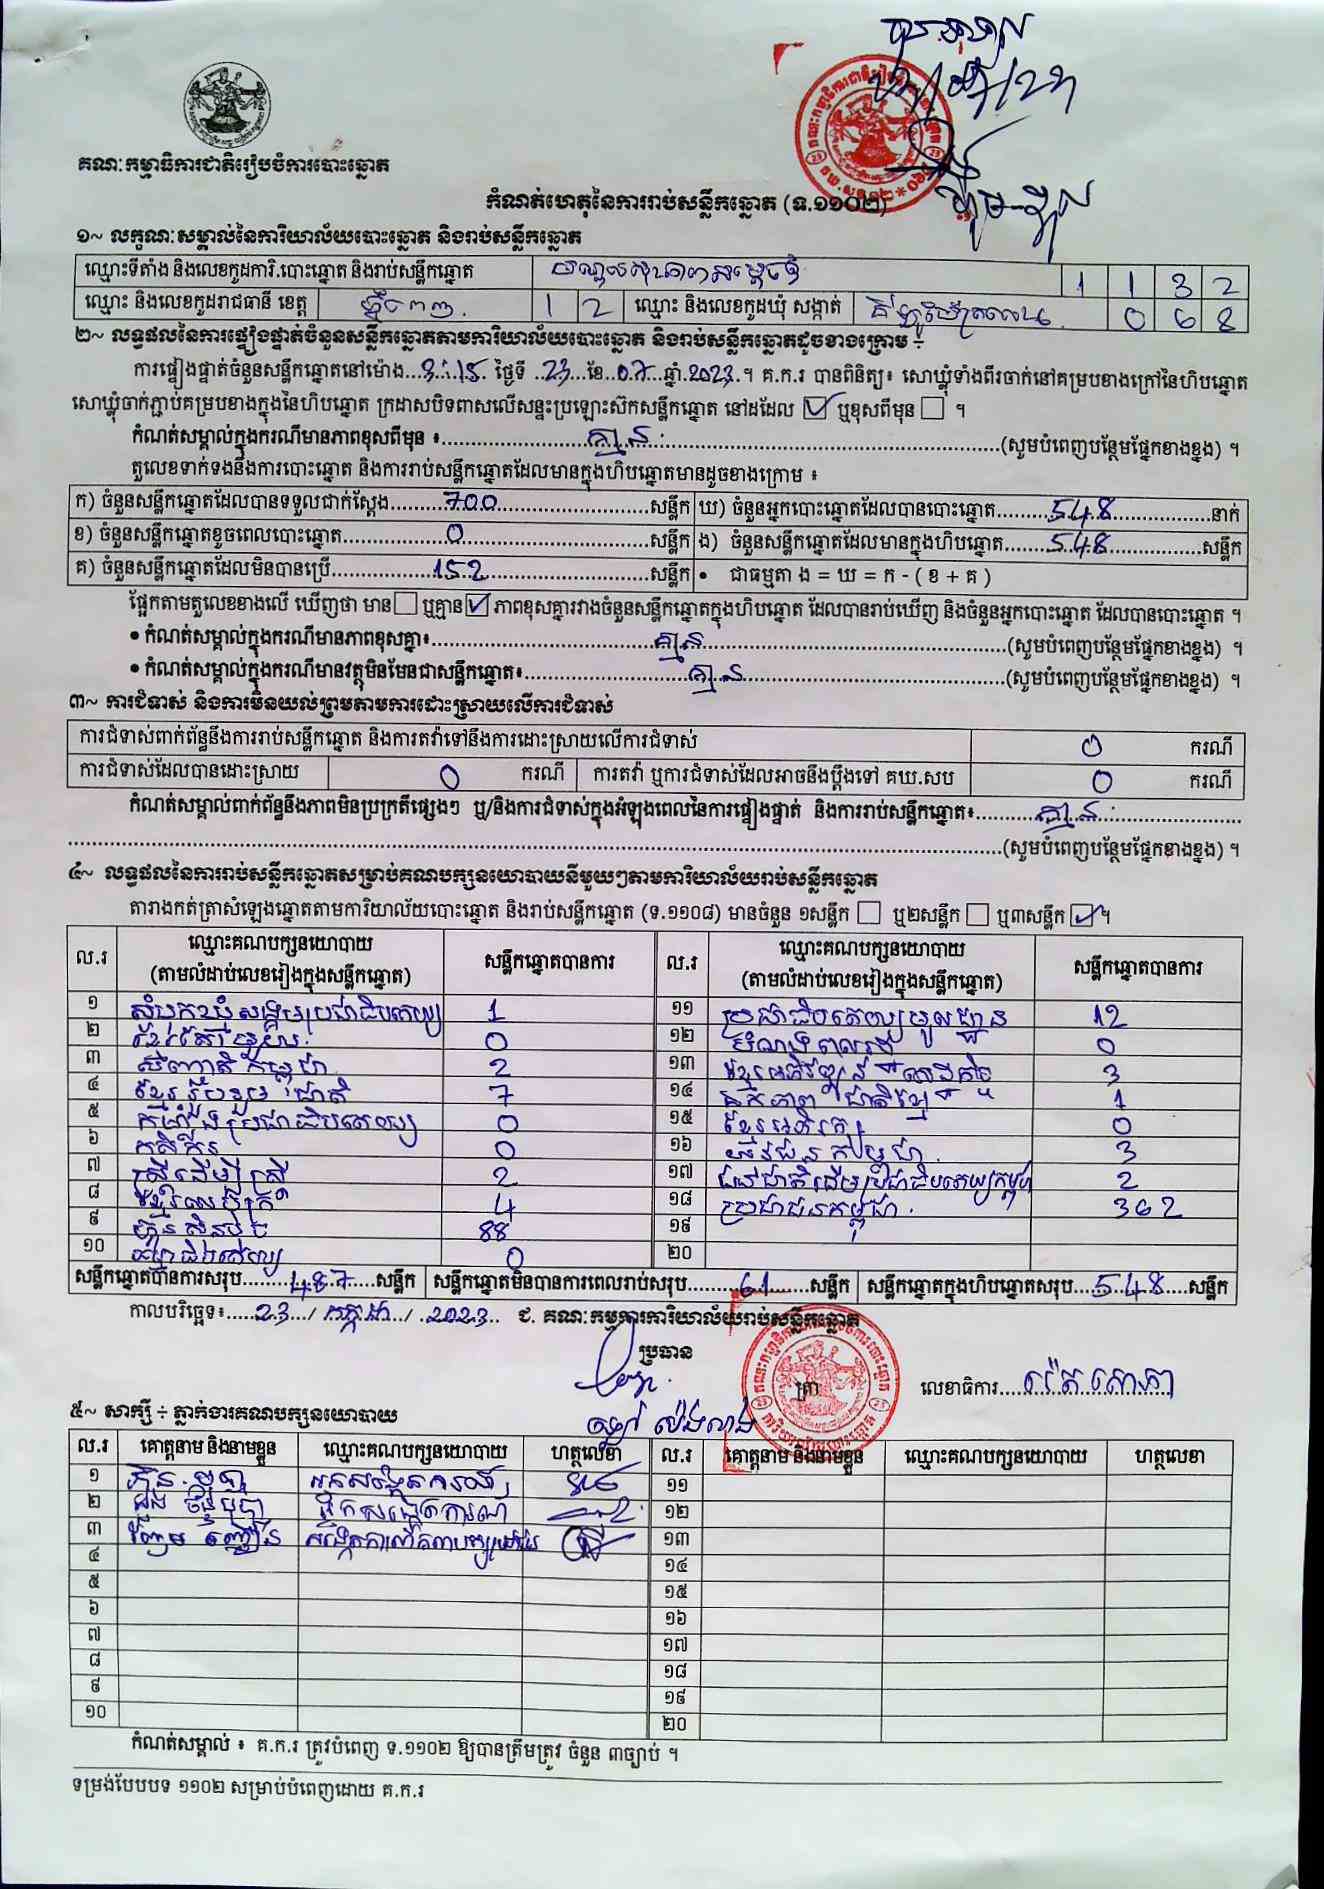 គណៈកម្មាធិការជាតិរៀបចំការបោះឆ្នោត
កំណត់ហេតុនៃការរាប់សន្លឹកឆ្នោត (ទ.១១០២)
១~ លក្ខណៈសម្គាល់នៃការិយាល័យបោះឆ្នោត និងរាប់សន្លឹកឆ្នោត
ឈ្មោះទីតាំង និងលេខកូដការិ.បោះឆ្នោត និងរាប់សន្លឹកឆ្នោត 1 1 3 2
ឈ្មោះ និងលេខកូដរាជធានី ខេត្ត ភ្នំពេញ 1 2 ឈ្មោះ និងលេខកូដឃុំ សង្កាត់ 0 6 8
២~ លទ្ធផលនៃការផ្ទៀងផ្ទាត់ចំនួនសន្លឹកឆ្នោតតាមការិយាល័យបោះឆ្នោត និងរាប់សន្លឹកឆ្នោតដូចខាងក្រោម ÷
ការផ្ទៀងផ្ទាត់ចំនួនសន្លឹកឆ្នោតនៅម៉ោង...3:15. ថ្ងៃទី ..23...ខែ..07...ឆ្នាំ.2023.។ គ.ក.រ បានពិនិត្យ៖ សោឃ្លុំទាំងពីរចាក់នៅគម្របខាងក្រៅនៃហិបឆ្នោត
សោឃ្លុំចាក់ភ្ជាប់គម្របខាងក្នុងនៃហិបឆ្នោត ក្រដាសបិទពាសលើសន្ទះប្រឡោះស៊កសន្លឹកឆ្នោត នៅដដែល ☑ ឬខុសពីមុន ☐ ។
កំណត់សម្គាល់ក្នុងករណីមានភាពខុសពីមុន ៖ គ្មាន (សូមបំពេញបន្ថែមផ្នែកខាងខ្នង) ។
តួលេខទាក់ទងនឹងការបោះឆ្នោត និងការរាប់សន្លឹកឆ្នោតដែលមានក្នុងហិបឆ្នោតមានដូចខាងក្រោម ៖
ក) ចំនួនសន្លឹកឆ្នោតដែលបានទទួលជាក់ស្តែង 700 សន្លឹក ឃ) ចំនួនអ្នកបោះឆ្នោតដែលបានបោះឆ្នោត 548 នាក់
ខ) ចំនួនសន្លឹកឆ្នោតខូចពេលបោះឆ្នោត 0 សន្លឹក ង) ចំនួនសន្លឹកឆ្នោតដែលមានក្នុងហិបឆ្នោត 548 សន្លឹក
គ) ចំនួនសន្លឹកឆ្នោតដែលមិនបានប្រើ 152 សន្លឹក • ជាធម្មតា ង = ឃ = ក - ( ខ + គ )
ផ្អែកតាមតួលេខខាងលើ ឃើញថា មាន ☐ ឬគ្មាន ☑ ភាពខុសគ្នារវាងចំនួនសន្លឹកឆ្នោតក្នុងហិបឆ្នោត ដែលបានរាប់ឃើញ និងចំនួនអ្នកបោះឆ្នោត ដែលបានបោះឆ្នោត ។
• កំណត់សម្គាល់ក្នុងករណីមានភាពខុសគ្នា៖ គ្មាន (សូមបំពេញបន្ថែមផ្នែកខាងខ្នង) ។
• កំណត់សម្គាល់ក្នុងករណីមានវត្ថុមិនមែនជាសន្លឹកឆ្នោត៖ គ្មាន (សូមបំពេញបន្ថែមផ្នែកខាងខ្នង) ។
៣~ ការជំទាស់ និងការមិនយល់ព្រមតាមការដោះស្រាយលើការជំទាស់
ការជំទាស់ពាក់ព័ន្ធនឹងការរាប់សន្លឹកឆ្នោត និងការតវ៉ាទៅនឹងការដោះស្រាយលើការជំទាស់ 0 ករណី
ការជំទាស់ដែលបានដោះស្រាយ 0 ករណី ការតវ៉ា ឬការជំទាស់ដែលអាចនឹងប្តឹងទៅ គឃ.សប 0 ករណី
កំណត់សម្គាល់ពាក់ព័ន្ធនឹងភាពមិនប្រក្រតីផ្សេងៗ ឬ/និងការជំទាស់ក្នុងអំឡុងពេលនៃការផ្ទៀងផ្ទាត់ និងការរាប់សន្លឹកឆ្នោត៖ គ្មាន
(សូមបំពេញបន្ថែមផ្នែកខាងខ្នង) ។
៤~ លទ្ធផលនៃការរាប់សន្លឹកឆ្នោតសម្រាប់គណបក្សនយោបាយនីមួយៗតាមការិយាល័យរាប់សន្លឹកឆ្នោត
តារាងកត់ត្រាសំឡេងឆ្នោតតាមការិយាល័យបោះឆ្នោត និងរាប់សន្លឹកឆ្នោត (ទ.១១០៨) មានចំនួន ១សន្លឹក ☐ ឬ២សន្លឹក ☐ ឬ៣សន្លឹក ☑។
ល.រ ឈ្មោះគណបក្សនយោបាយ (តាមលំដាប់លេខរៀងក្នុងសន្លឹកឆ្នោត) សន្លឹកឆ្នោតបានការ ល.រ ឈ្មោះគណបក្សនយោបាយ (តាមលំដាប់លេខរៀងក្នុងសន្លឹកឆ្នោត) សន្លឹកឆ្នោតបានការ
១ សំបុកឃ្មុំសង្គមប្រជាធិបតេយ្យ 1 ១១ ប្រជាធិបតេយ្យមូលដ្ឋាន 12
២ 0 ១២ 0
៣ កម្ពុជា 2 ១៣ ខ្មែរអភិវឌ្ឍន៍សេដ្ឋកិច្ច 3
៤ ខ្មែររួបរួមជាតិ 7 ១៤ ឯកភាពជាតិខ្មែរ 1
៥ កម្លាំងប្រជាធិបតេយ្យ 0 ១៥ ខ្មែរអភិរក្ស 0
៦ កសិករ 0 ១៦ យុវជនកម្ពុជា 3
៧ ស្ត្រីដើម្បីស្ត្រី 2 ១៧ 2
៨ ខ្មែរឈប់ក្រ 4 ១៨ ប្រជាជនកម្ពុជា 362
៩ ហ៊្វុនស៊ិនប៉ិច 88 ១៩
១០ 0 ២០
សន្លឹកឆ្នោតបានការសរុប 487 សន្លឹក សន្លឹកឆ្នោតមិនបានការពេលរាប់សរុប 61 សន្លឹក សន្លឹកឆ្នោតក្នុងហិបឆ្នោតសរុប 548 សន្លឹក
កាលបរិច្ឆេទ៖ 23 / កក្កដា / 2023 ជ. គណៈកម្មការការិយាល័យរាប់សន្លឹកឆ្នោត
ប្រធាន
ត្រា លេខាធិការ
៥~ សាក្សី ÷ ភ្នាក់ងារគណបក្សនយោបាយ
ល.រ គោត្តនាម និងនាមខ្លួន ឈ្មោះគណបក្សនយោបាយ ហត្ថលេខា ល.រ គោត្តនាម និងនាមខ្លួន ឈ្មោះគណបក្សនយោបាយ ហត្ថលេខា
១ អ្នកសង្កេតការណ៍ ១១
២ អ្នកសង្កេតការណ៍ ១២
៣ ១៣
៤ ១៤
៥ ១៥
៦ ១៦
៧ ១៧
៨ ១៨
៩ ១៩
១០ ២០
កំណត់សម្គាល់ ៖ គ.ក.រ ត្រូវបំពេញ ទ.១១០២ ឱ្យបានត្រឹមត្រូវ ចំនួន ៣ច្បាប់ ។
ទម្រង់បែបបទ ១១០២ សម្រាប់បំពេញដោយ គ.ក.រ